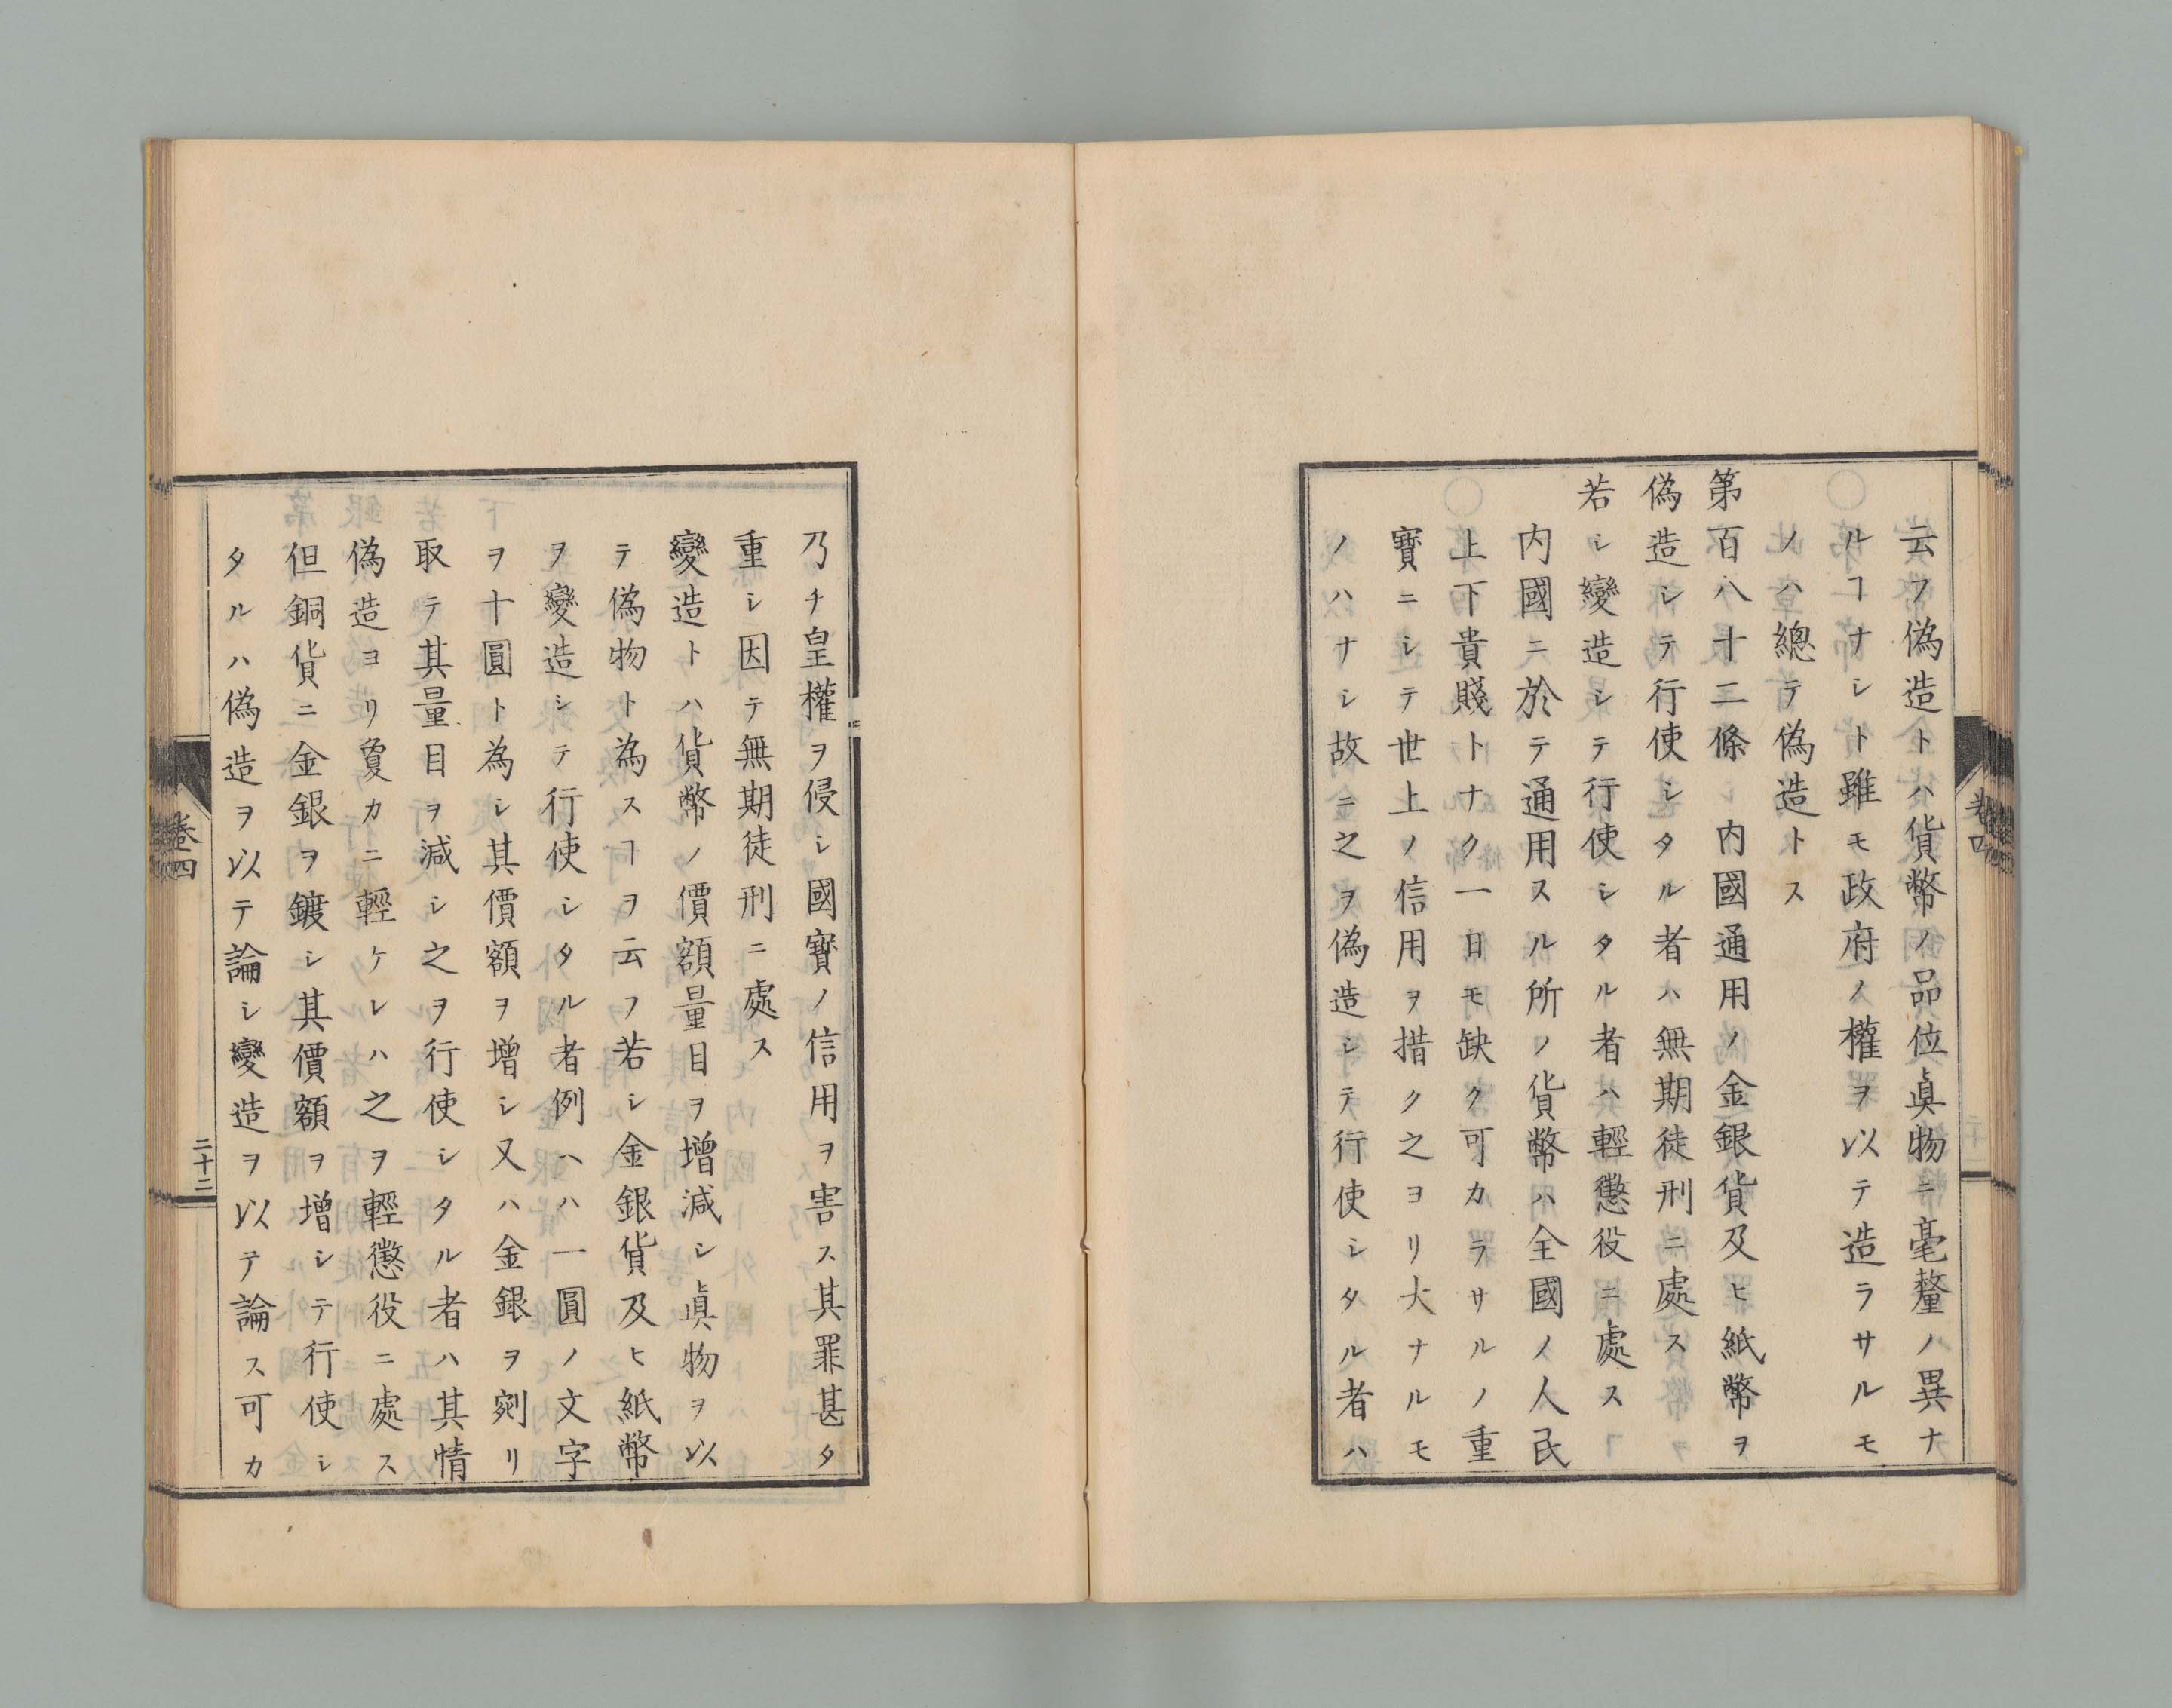 云フ偽造トハ貨幣ノ品位眞物ニ毫釐ノ異ナ
ルヿナシト雖モ政府ノ權ヲ以テ造ラサルモ
ノハ總テ偽造トス
第百八十二條 内國通用ノ金銀貨及ヒ紙幣ヲ
偽造シテ行使シタル者ハ無期徒刑ニ處ス
若シ變造シテ行使シタル者ハ輕懲役ニ處ス
内國ニ於テ通用スル所ノ貨幣ハ全國ノ人民
上下貴賤トナク一日モ缺ク可カラサルノ重
寶ニシテ世上ノ信用ヲ措ク之ヨリ大ナルモ
ノハナシ故ニ之ヲ偽造シテ行使シタル者ハ
卷四
乃チ皇權ヲ侵シ國寶ノ信用ヲ害ス其罪甚タ
重シ因テ無期徒刑ニ處ス
變造トハ貨幣ノ價額量目ヲ增減シ眞物ヲ以
テ偽物ト為スヿヲ云フ若シ金銀貨及ヒ紙幣
ヲ變造シテ行使シタル者例ハハ一圓ノ文字
ヲ十圓ト為シ其價額ヲ增シ又ハ金銀ヲ剜リ
取テ其量目ヲ減シ之ヲ行使シタル者ハ其情
偽造ヨリ夐カニ輕ケレハ之ヲ輕懲役ニ處ス
但銅貨ニ金銀ヲ鍍シ其價額ヲ增シテ行使シ
タルハ偽造ヲ以テ論シ變造ヲ以テ論ス可カ
卷四
二十二